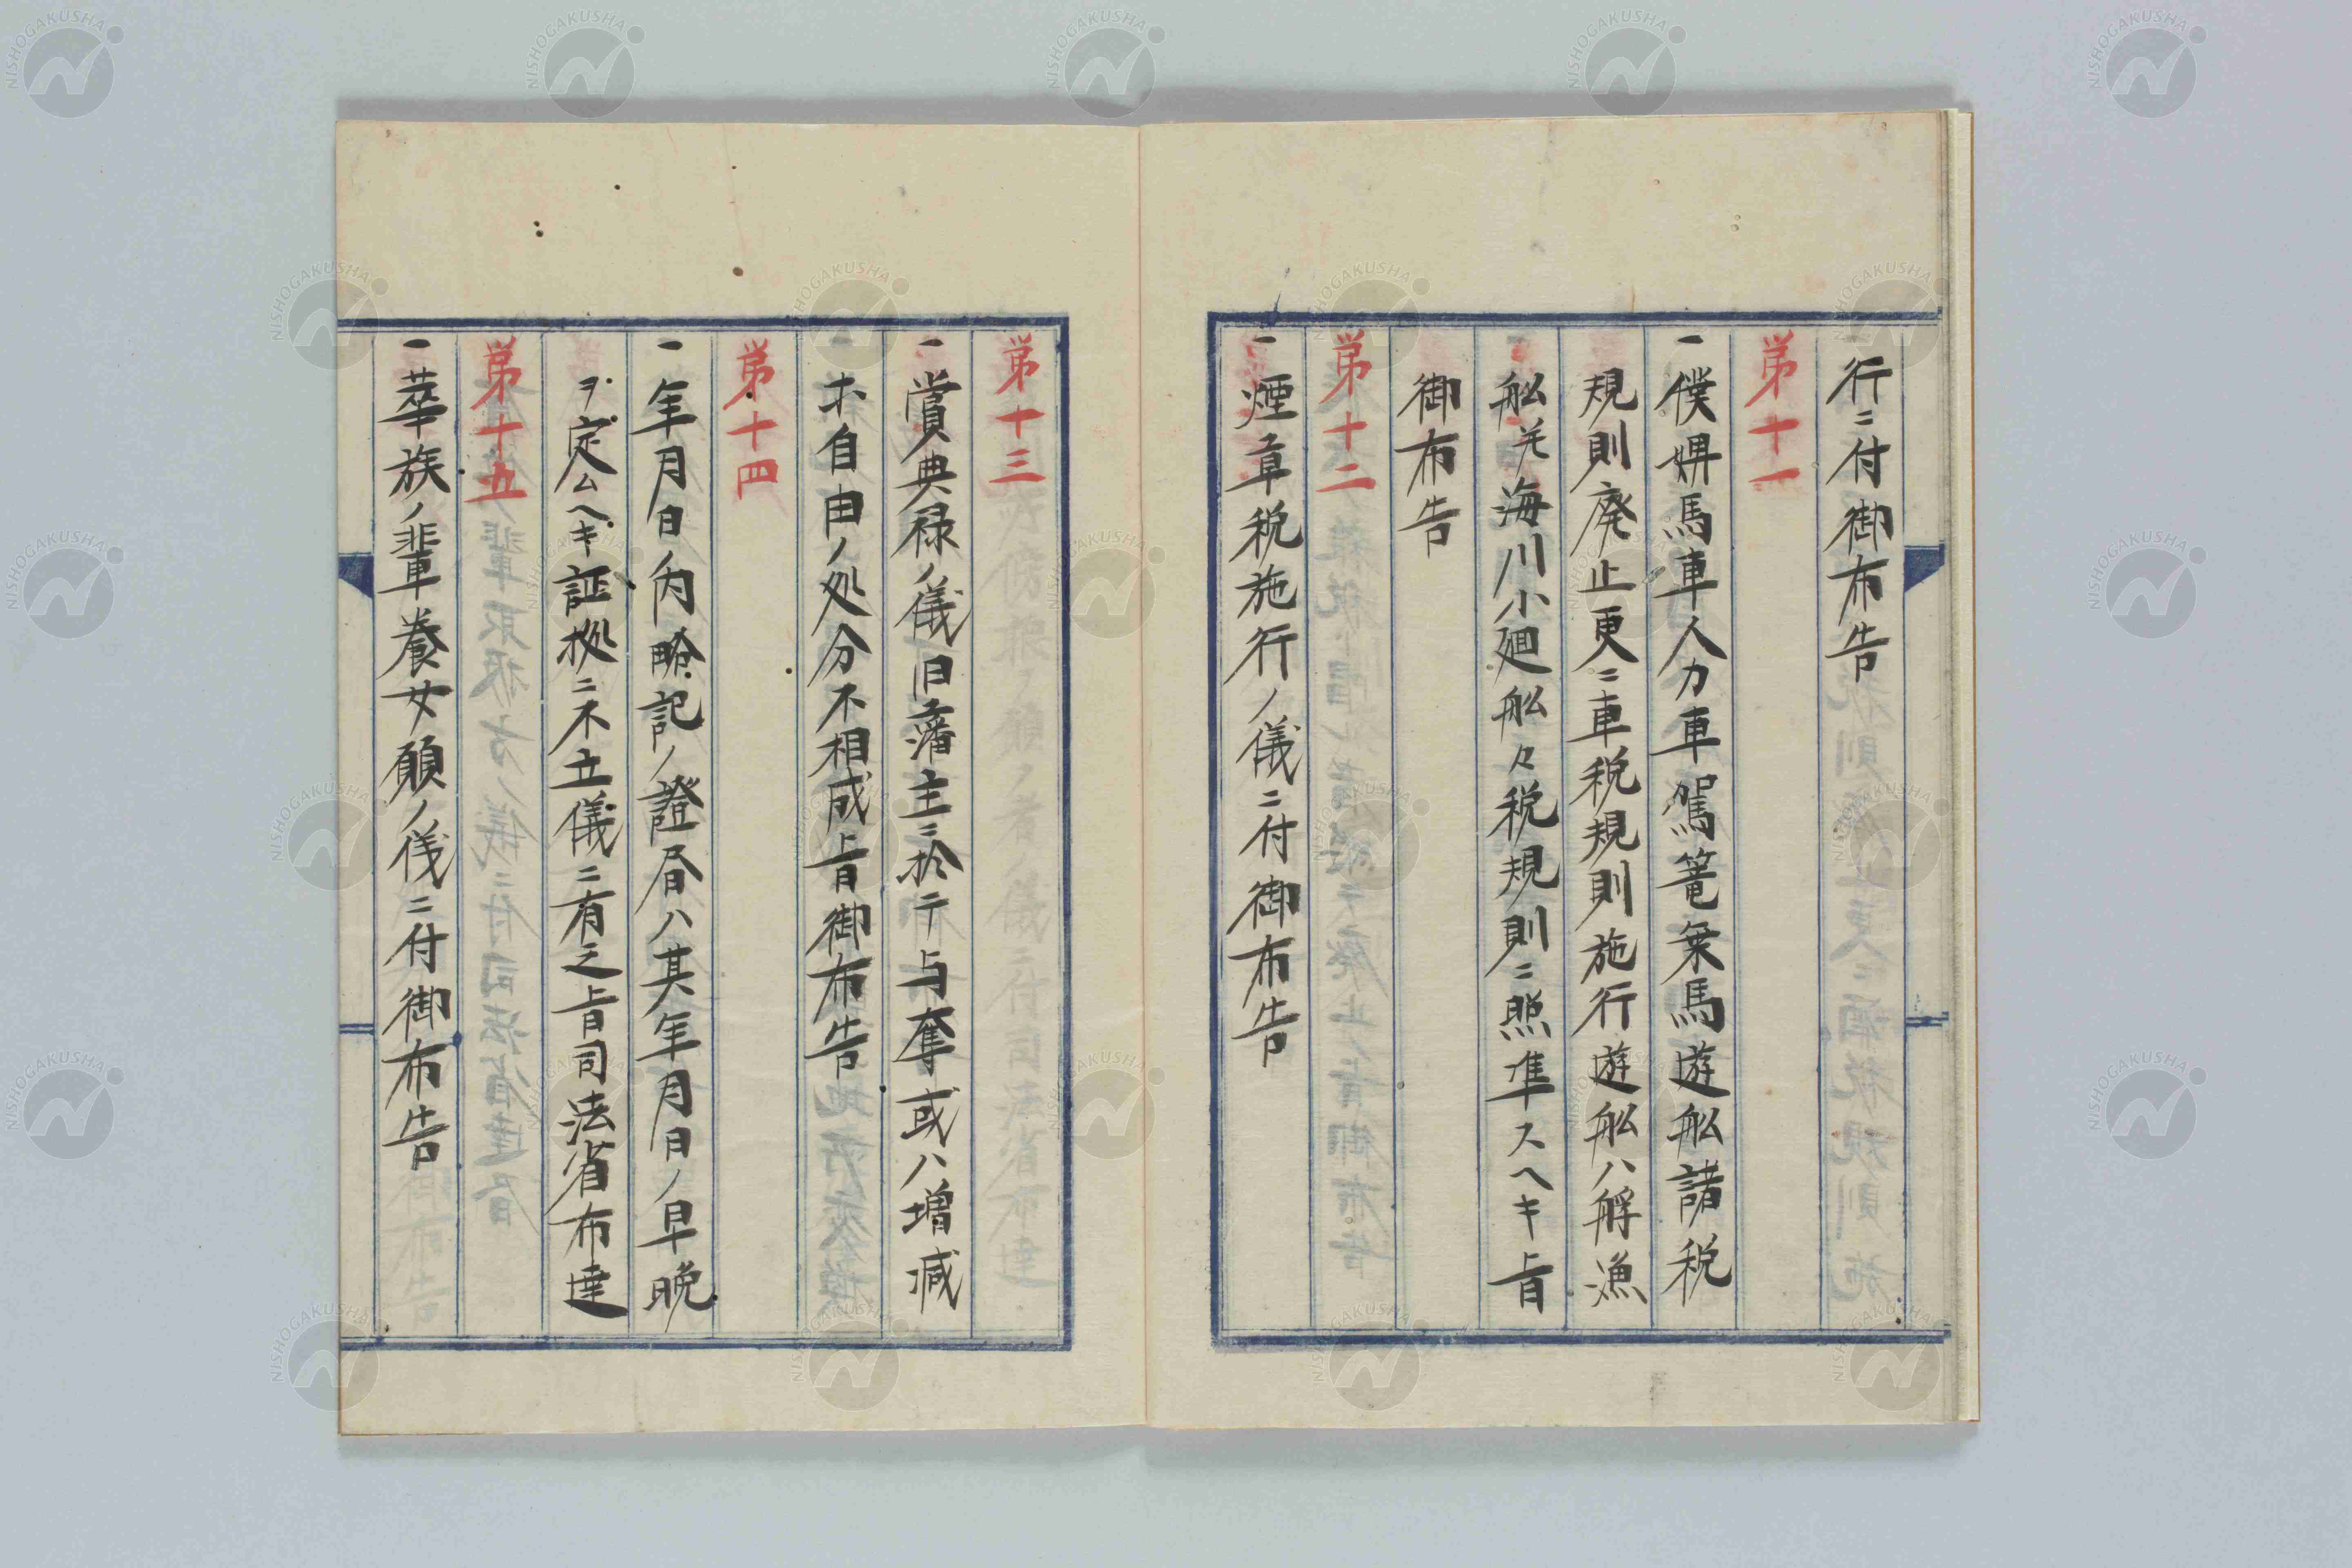 行ニ付御布告
第十一
一僕婢馬車人力車駕篭乗馬遊舩諸税
規則廃止更ニ車税規則施行遊舩ハ艀漁
舩并海川小廻舩々税規則ニ照準スヘキ旨
御布告
第十二
一煙草税施行ノ儀ニ付御布告
第十三
一賞典禄ノ儀旧藩主ニ於テ与奪或ハ増減
ホ自由ノ処分不相成旨御布告
第十四
一年月日内略記ノ證書ハ其年月日ノ早晩
ヲ定ムヘキ証拠ニ不立儀ニ有之旨司法省布達
第十五
一華族ノ輩養女願ノ儀ニ付御布告
NISHOGAKUSHA